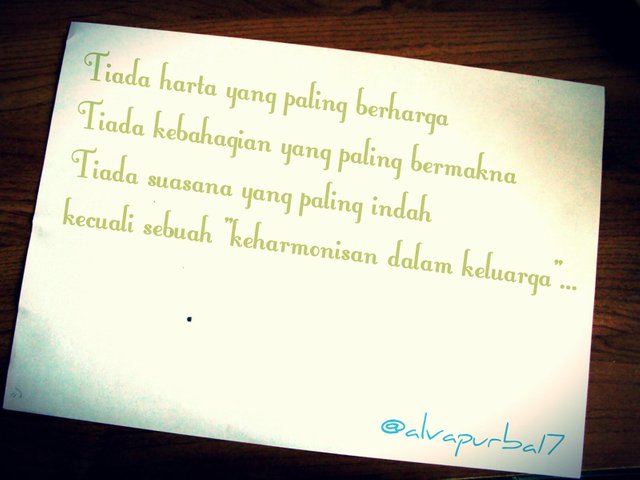 Tiada harta yang paling berharga
Tiada kebahagian yang paling bermakna
Tiada suasana yang paling indah
kecuali sebuah "keharmonisan dalam keluarga"...
@alvapurba17